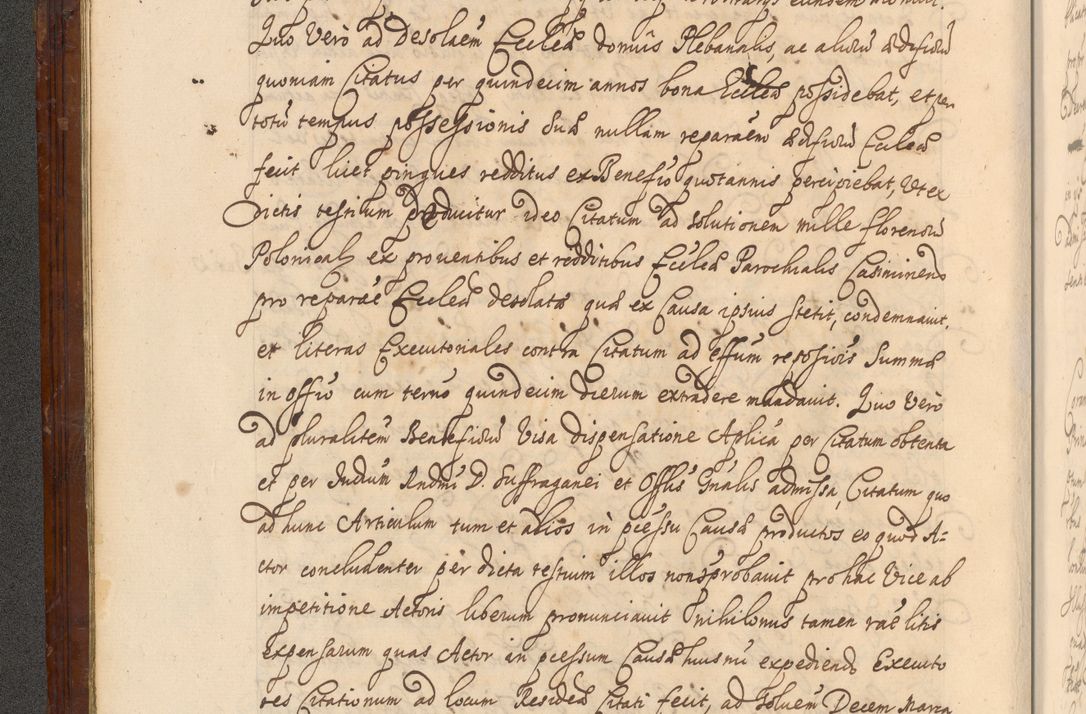 Quo Verò ad Desolaem̃ Eccleæ domus Plebanalis, ac aliorũ ædificiorũ
quoniam Citatus per quindecim annos bona Eccleæ possidebat, et per
totũ tempus possessionis suæ nullam reparaem̃ ædificiorũ Eccleæ
fecit licet pingues redditus ex Beneficio quotannis percipiebat, Ut ex
dictis testium producitur ideo Citatum ad solutionem mille florenorũ
Polonical ex prouentibus et redditibus Eccleæ Parochialis Casimirien
pro reparãe Eccleæ desolatæ quæ ex Causa ipsius stetit, condemnauit.
et literas Executoriales contra Citatum ad effũm repositiõis Summæ
in Offĩo cum termo quindecim dierum extradere mandauit. Quo Verò
ad pluralitẽm Beneficiorũ Visa dispensatione Aplica per Citatum obtenta
et per Judium Rndmi D. Suffraganei et Offlis Gñalis admissa, Citatum quo
ad hunc Articulum tum et alios in pcessu Causæ productos eo quod A-
ctor concludenter per dicta testium illos non probauit pro hac Vice ab
impetitione Actoris liberum pronunciauit nihilominus tamen rãe litis
expensarum quas Actor in pcessum Causæ huiusmi expediend Executo
res Citationum ad locum Residẽæ Citati fecit, ad soluem̃ Decem Marca